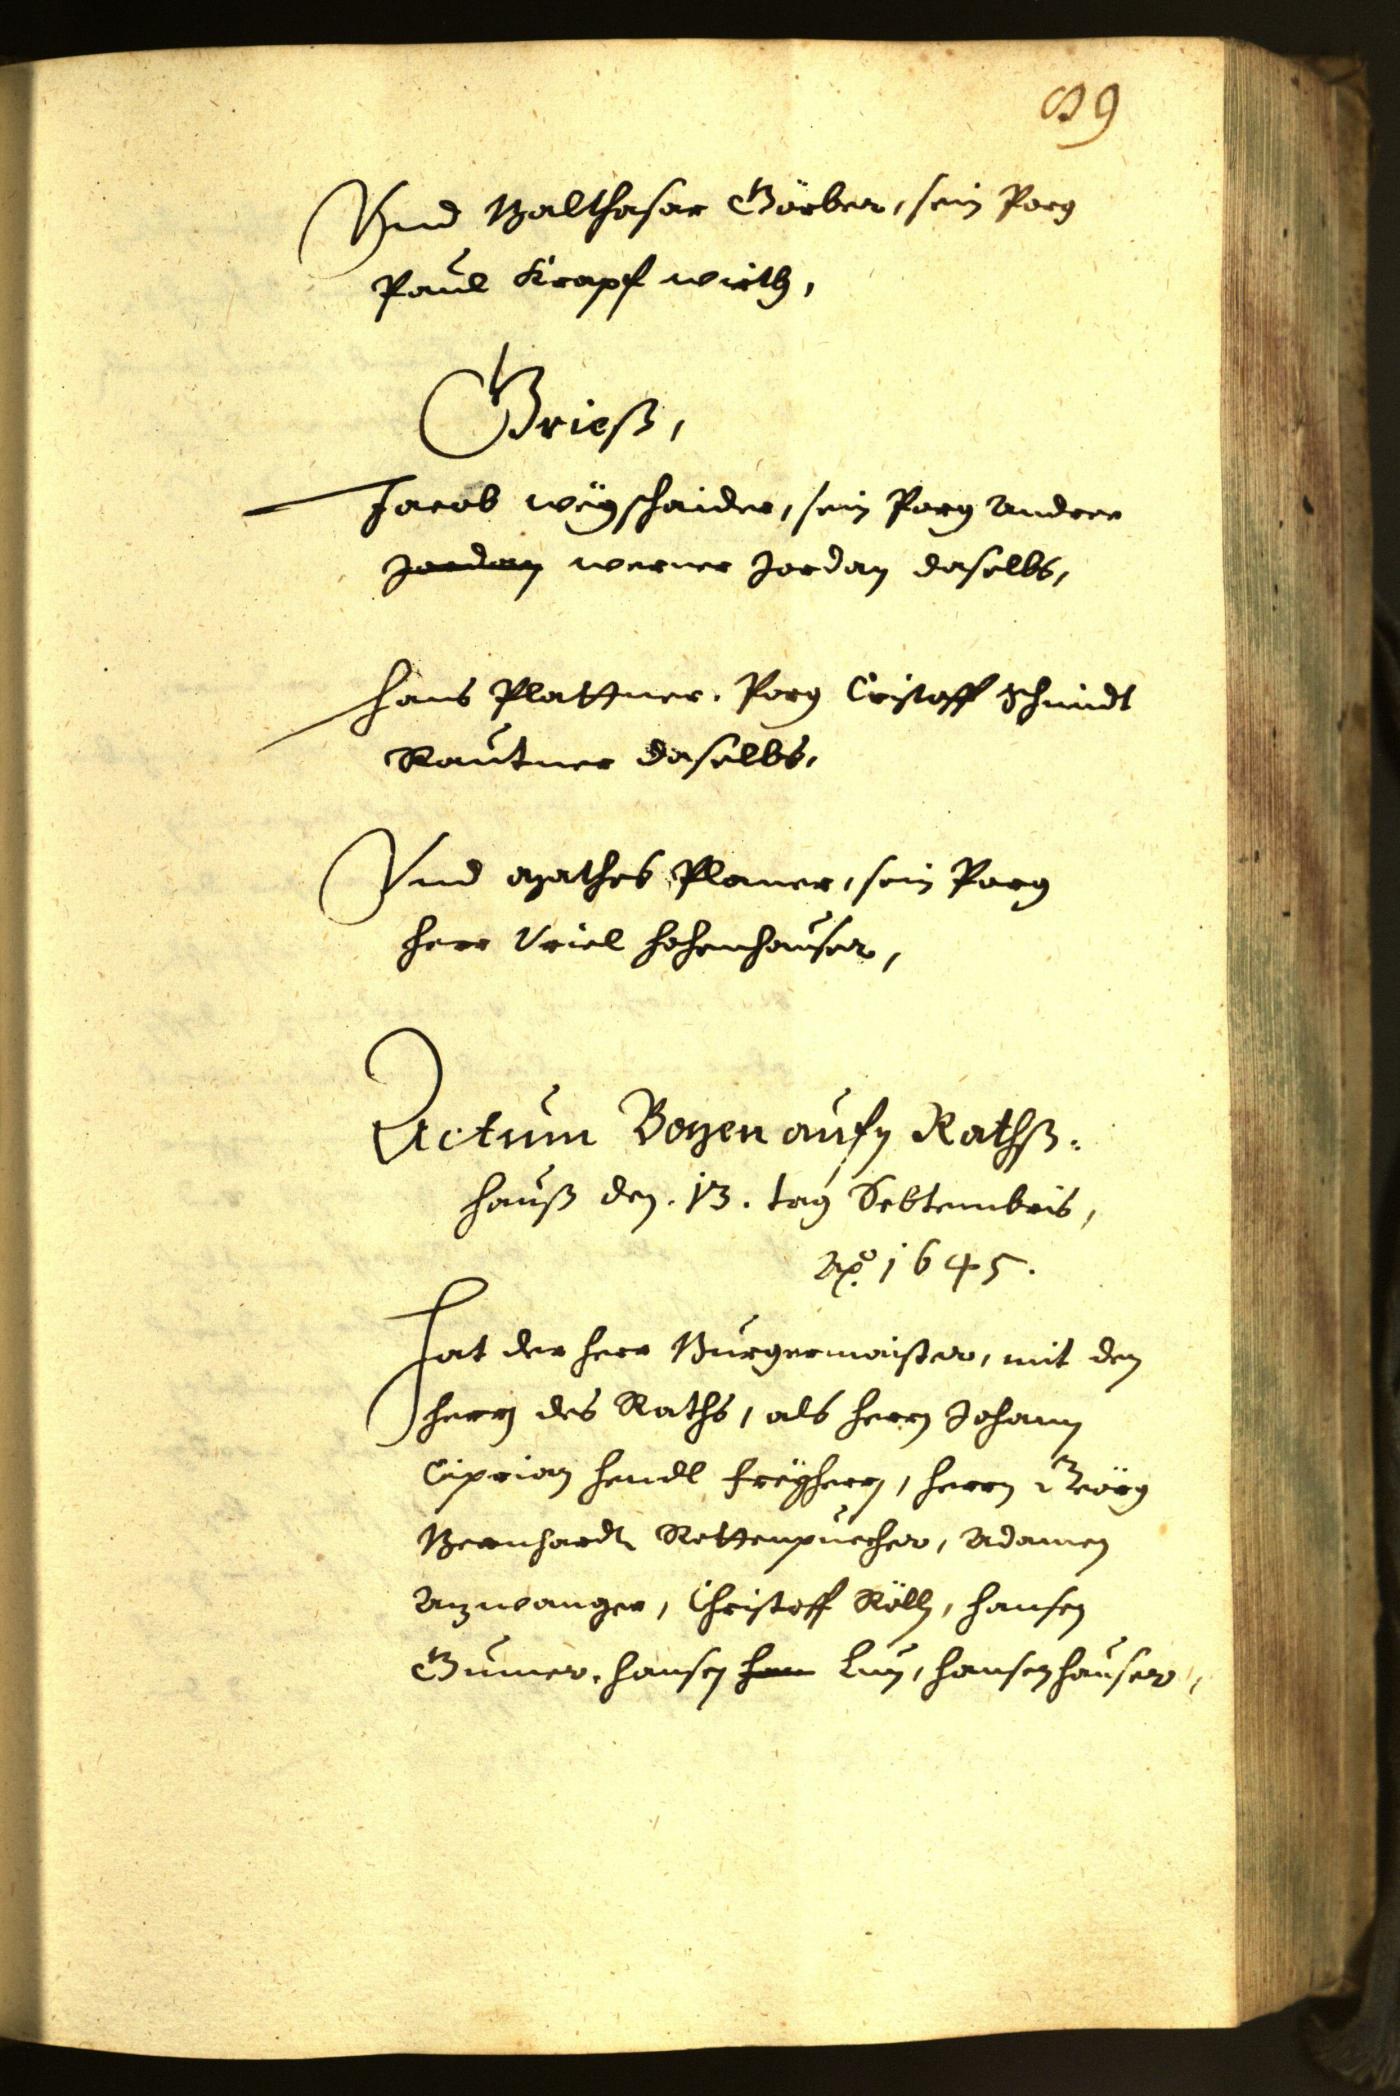 89
Vnd Balthasar Görber, sein Porg
Paul Krapf wirth,
Grieß,
Jacob wëgschaider, sein Porg Andree
Jordan werner Jordan daselbs,
Hans Plattner. Porg Cristoff Schmidt
Rautner daselbs,
Vnd Mathes Planer, sein Porg
Herr Vriel Hohenhauser,
Actum Bozen aufm Rathß=
hauß den .13. tag Sebtembris,
Ao. 1645.
Hat der Herr Burgermaister, mit den
Herrn des Raths, als Herrn Johann
Ciprian Hendl Freÿherrn, Herrn Geörg
Bernhardt Rottenpuecher, Adamen
Azwanger, Christoff Röll, Hansen
Gumer, Hansen Lun, Hansen Hauser,